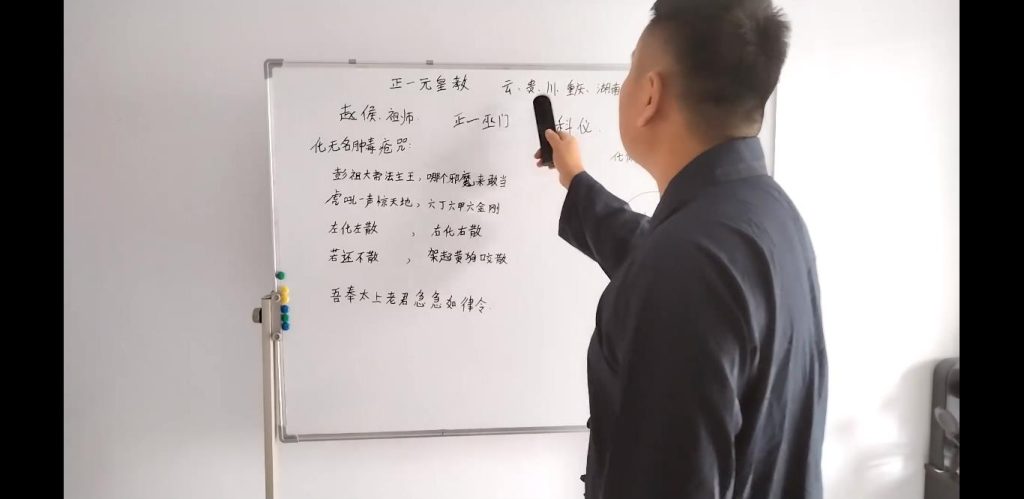 正一元皇教 云、贵、川、重庆、湖南
赵侯祖师. 正一巫门 科仪.
化无名肿毒疮咒:
彭祖大郎法主王，哪个邪魔来敢当
虎吼一声惊天地，六丁六甲六金刚
左化左散 ， 右化右散
若还不散 ， 架起黄狗咬散
吾奉太上老君急急如律令.